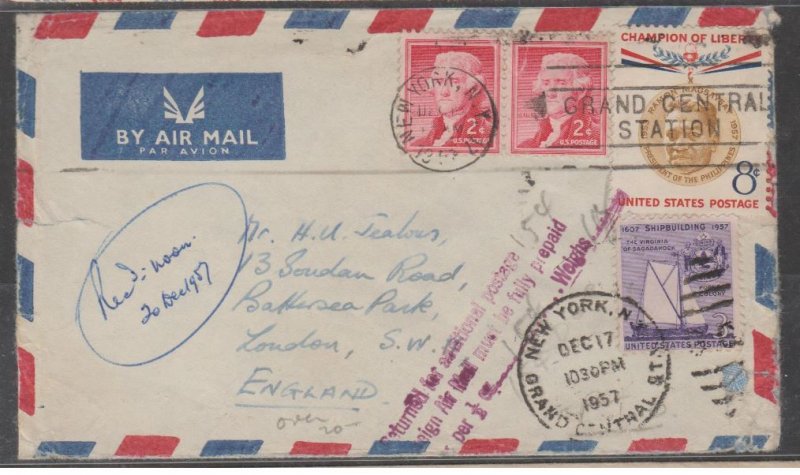 BY AIR MAIL
PAR AVION
NEW YORK, N.Y.
2¢
U.S. POSTAGE
2¢
U.S. POSTAGE
GRAND CENTRAL
STATION
CHAMPION OF LIBERTY
1957
PRESIDENT OF THE PHILIPPINES
8¢
UNITED STATES POSTAGE
1607 SHIPBUILDING 1957
THE VIRGINIA
OF SAGADAHOCK
UNITED STATES POSTAGE
Rec'd: noon.
20 Dec 1957
Mr. H. U. Jealous,
13 Soudan Road,
Battersea Park,
London, S.W.
ENGLAND
over
Returned for additional postage
Foreign Air Mail must be fully prepaid
per ½ oz. Weighs
154
NEW YORK, N.Y.
DEC 17
1030 PM
1957
GRAND CENTRAL STA.